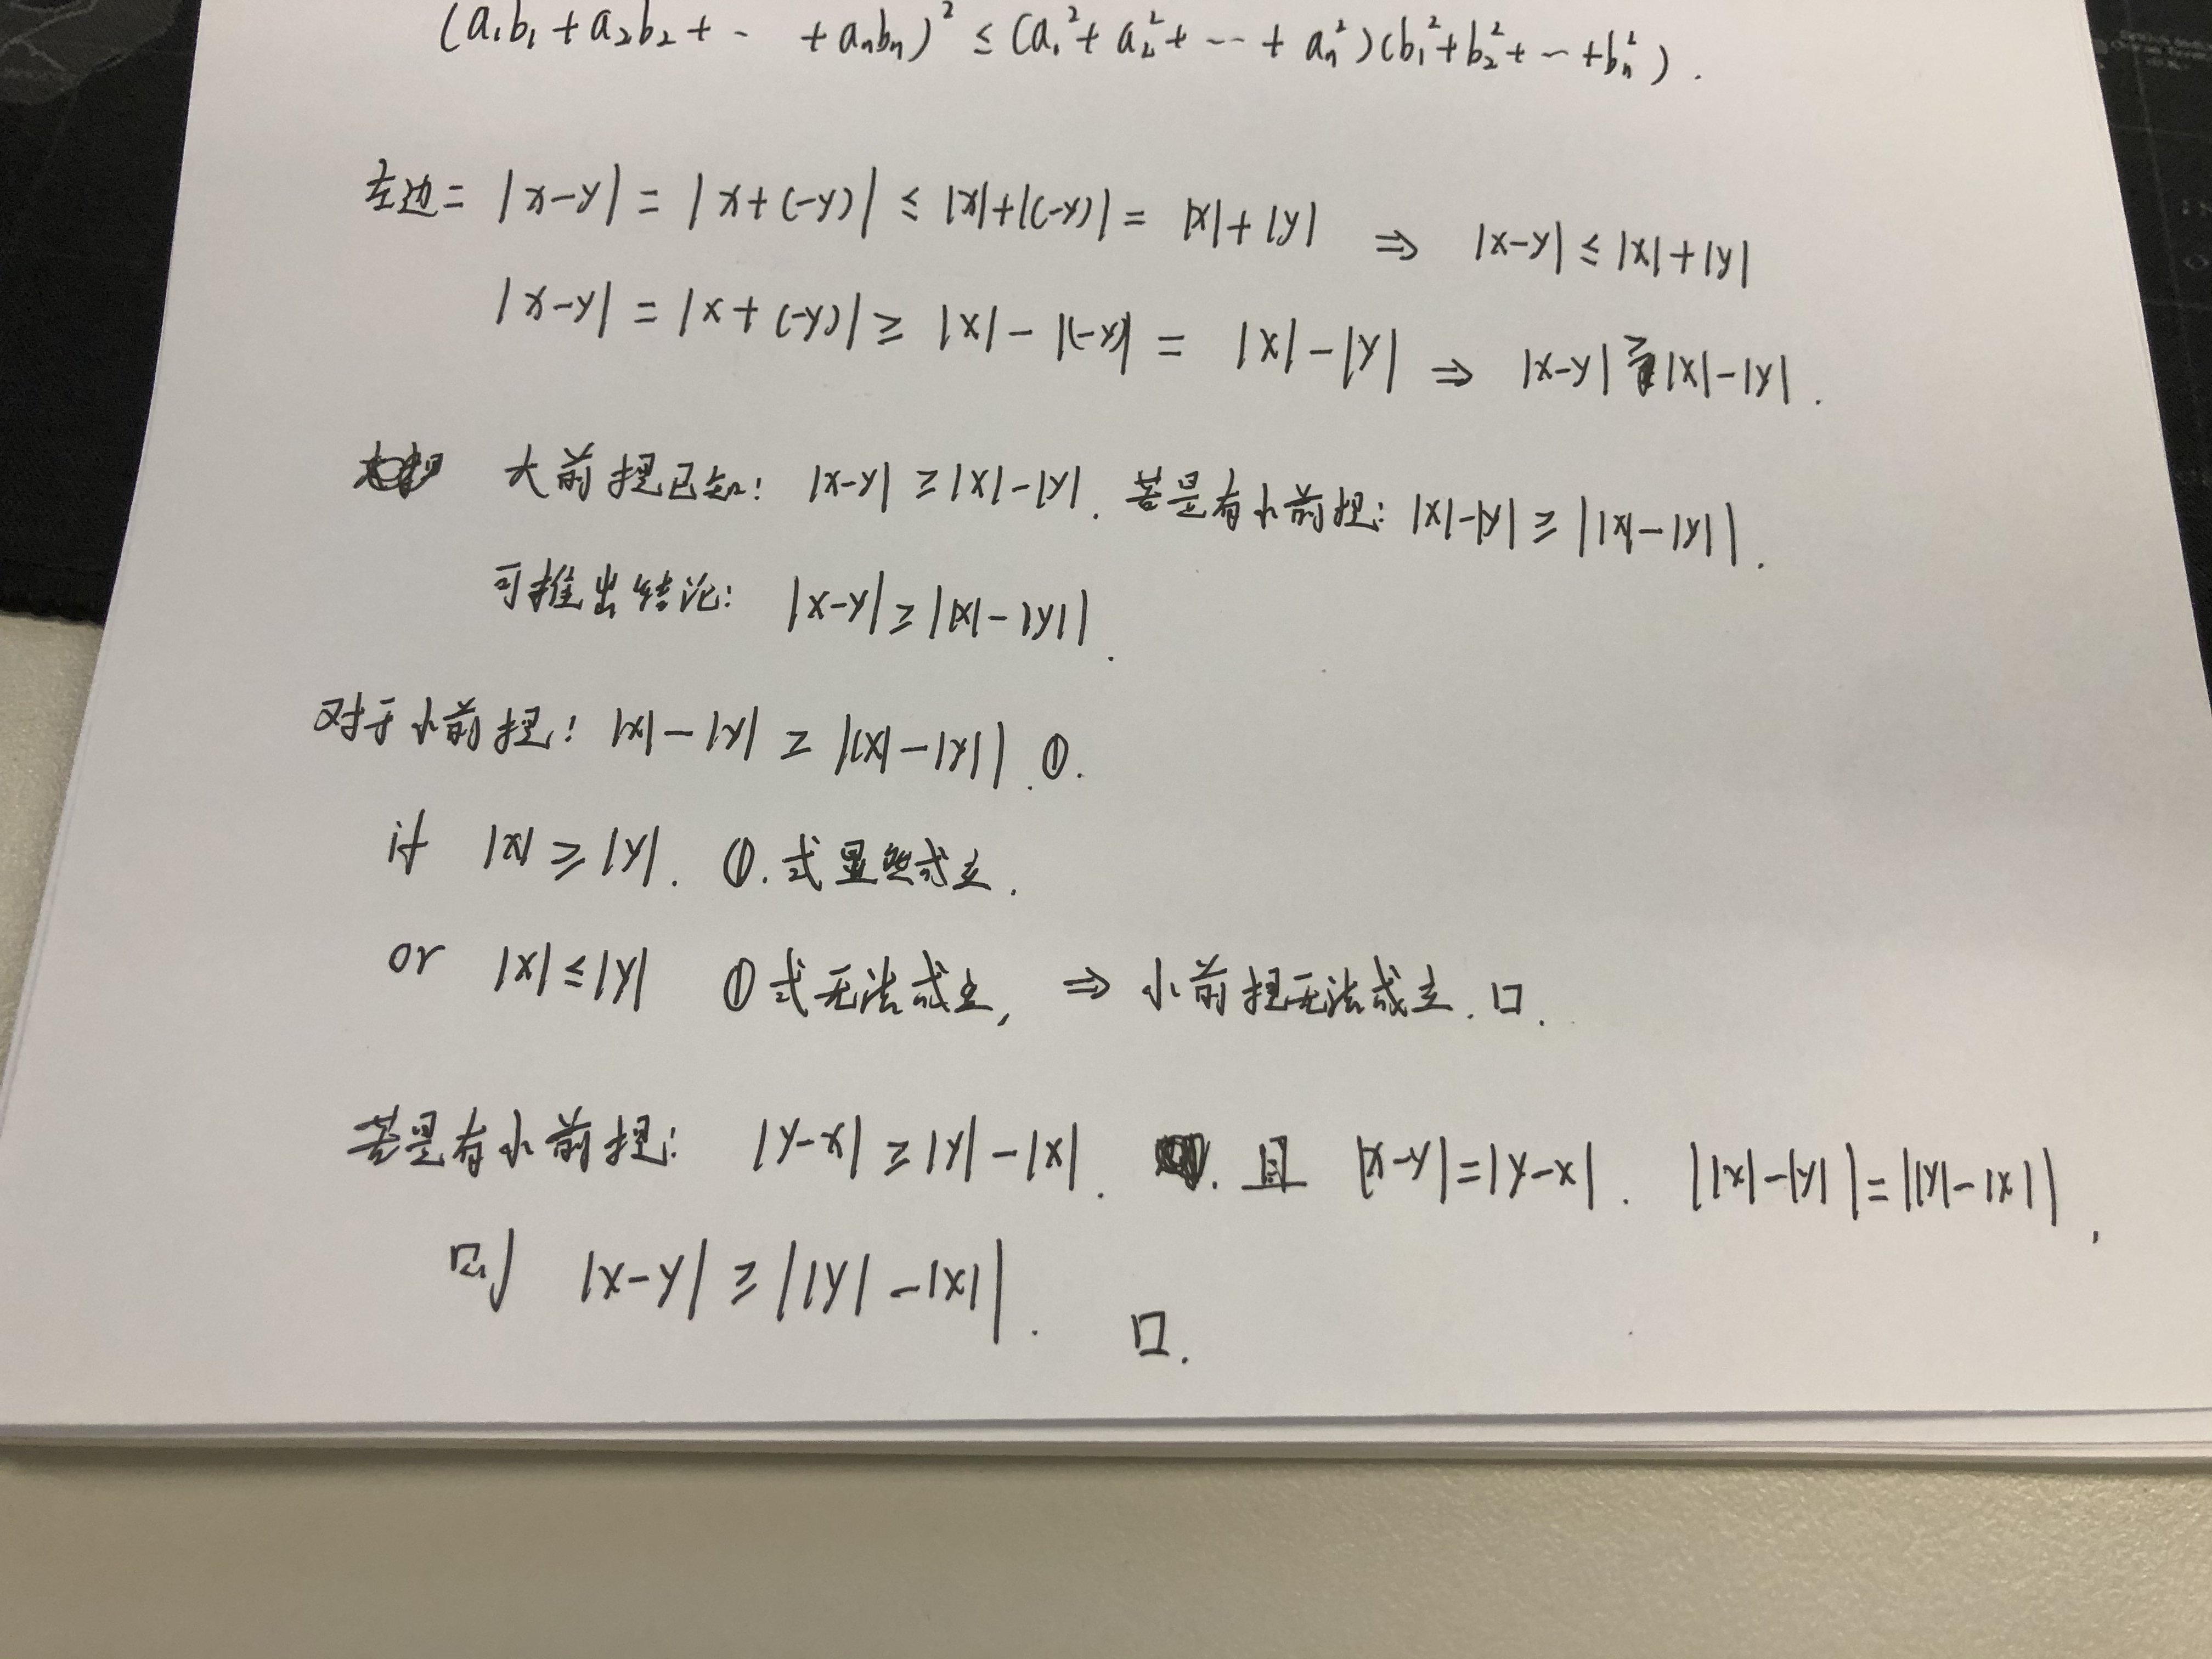 (a₁b₁ + a₂b₂ + ⋯ + aₙbₙ)² ≤ (a₁² + a₂² + ⋯ + aₙ²)(b₁² + b₂² + ⋯ + bₙ²).
左边 = |x-y| = |x+(-y)| ≤ |x|+|(-y)| = |x|+|y| ⇒ |x-y| ≤ |x|+|y|
|x-y| = |x+(-y)| ≥ |x| - |(-y)| = |x| - |y| ⇒ |x-y| ≥ |x|-|y|.
大前提已知: |x-y| ≥ |x|-|y|. 若是有小前提: |x|-|y| ≥ ||x|-|y||.
可推出结论: |x-y| ≥ ||x|-|y||.
对于小前提: |x|-|y| ≥ ||x|-|y||. ①.
if |x| ≥ |y|. ①.式显然成立.
or |x| ≤ |y| ①式无法成立, ⇒ 小前提无法成立. □.
若是有小前提: |y-x| ≥ |y|-|x|. 且 |x-y|=|y-x|. ||x|-|y||=||y|-|x||,
即 |x-y| ≥ ||y|-|x||. □.